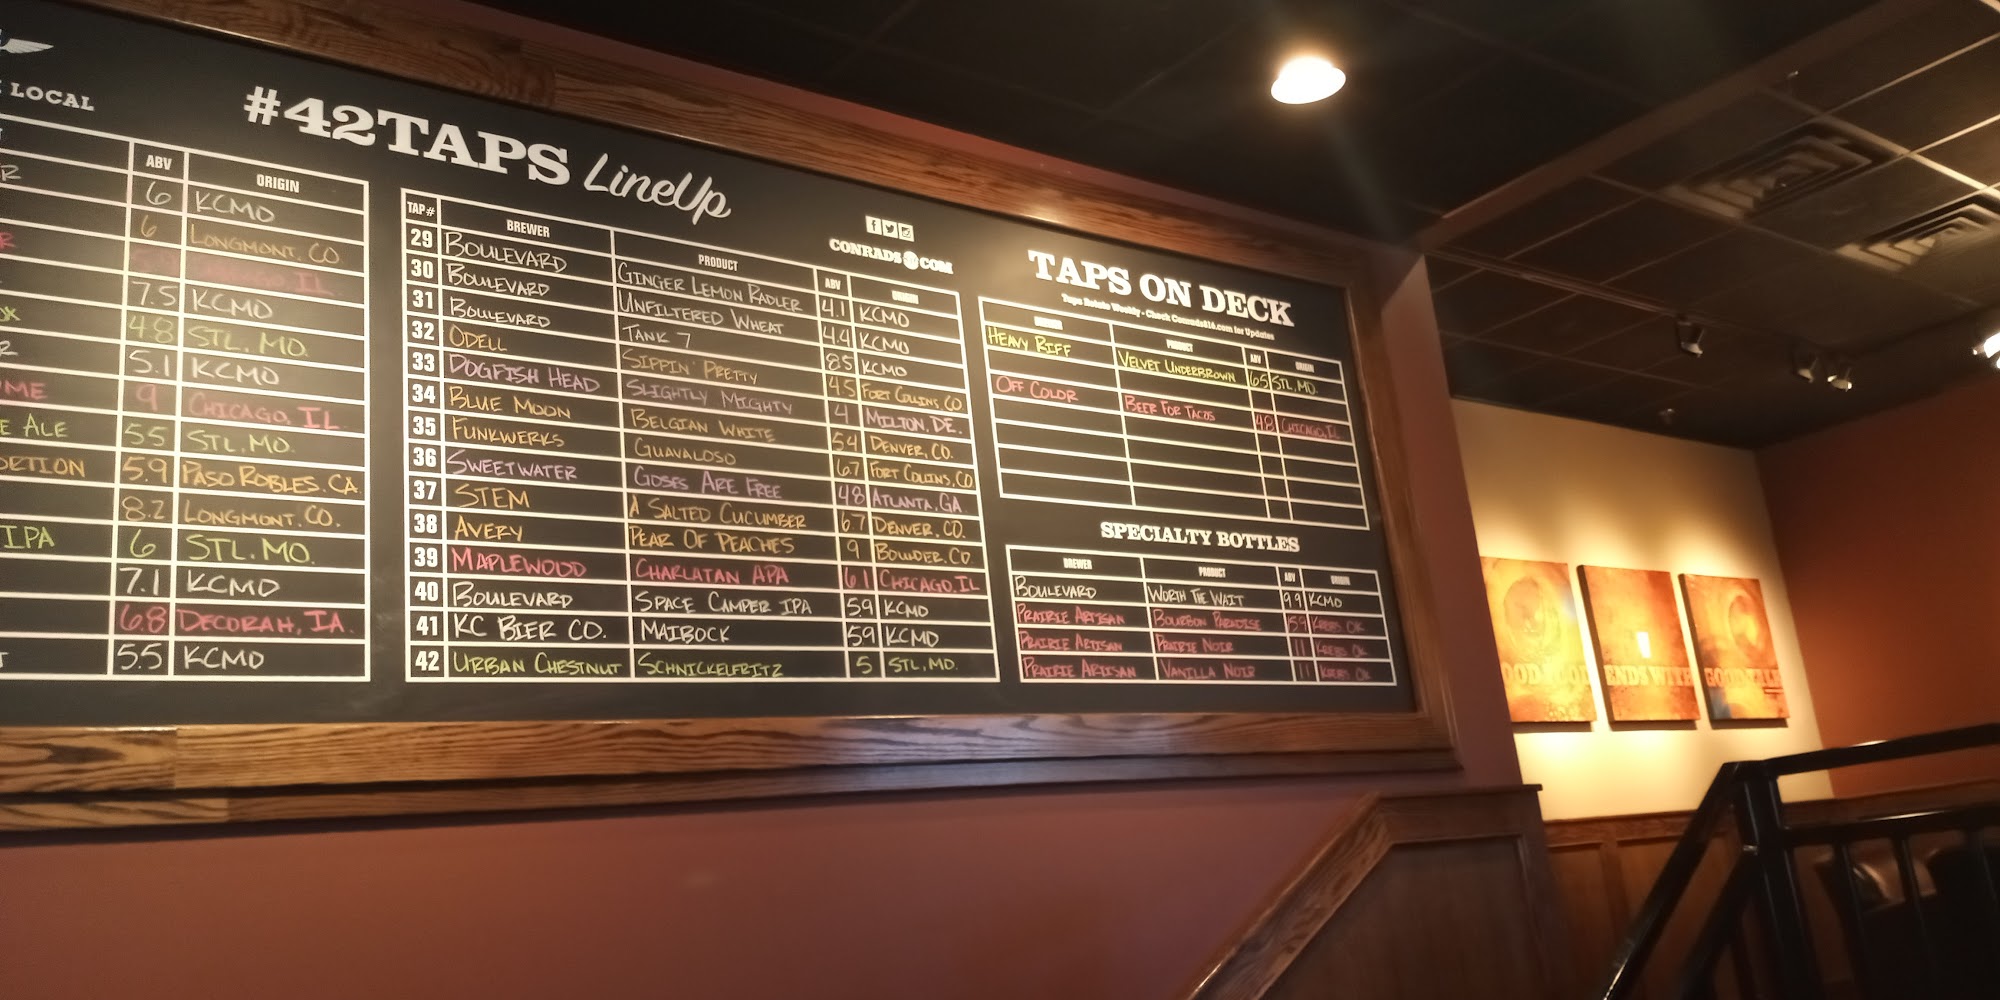 LOCAL
#42TAPS LineUp
ABV ORIGIN
R 6 KCMO
6 LONGMONT, CO
R IL
7.5 KCMO
OK 4.8 STL, MO.
R 5.1 KCMO
ME 9 CHICAGO, IL
E ALE 5.5 STL, MO.
ORTION 5.9 PASO ROBLES, CA
8.2 LONGMONT, CO.
IPA 6 STL, MO.
7.1 KCMO
6.8 DECORAH, IA.
T 5.5 KCMO
CONRADS COM
TAP# BREWER PRODUCT ABV ORIGIN
29 BOULEVARD GINGER LEMON RADLER 4.1 KCMO
30 BOULEVARD UNFILTERED WHEAT 4.4 KCMO
31 BOULEVARD TANK 7 8.5 KCMO
32 ODELL SIPPIN' PRETTY 4.5 FORT COLLINS, CO
33 DOGFISH HEAD SLIGHTLY MIGHTY 4 MILTON, DE.
34 BLUE MOON BELGIAN WHITE 5.4 DENVER, CO.
35 FUNKWERKS GUAVALOSO 6.7 FORT COLLINS, CO
36 SWEETWATER GOSES ARE FREE 4.8 ATLANTA, GA.
37 STEM A SALTED CUCUMBER 6.7 DENVER, CO.
38 AVERY PEAR OF PEACHES 9 BOULDER, CO.
39 MAPLEWOOD CHARLATAN APA 6.1 CHICAGO, IL
40 BOULEVARD SPACE CAMPER IPA 5.9 KCMO
41 KC BIER CO. MAIBOCK 5.9 KCMO
42 URBAN CHESTNUT SCHNICKELFRITZ 5 STL, MO.
TAPS ON DECK
Taps Rotate Weekly - Check Conrads816.com for Updates
BREWER PRODUCT ABV ORIGIN
HEAVY RIFF VELVET UNDERBROWN 6.5 STL, MO.
OFF COLOR BEER FOR TACOS 4.8 CHICAGO, IL
SPECIALTY BOTTLES
BREWER PRODUCT ABV ORIGIN
BOULEVARD WORTH THE WAIT 9.9 KCMO
PRAIRIE ARTISAN BOURBON PARADISE 15.9 KREBS OK
PRAIRIE ARTISAN PRAIRIE NOIR 11 KREBS OK
PRAIRIE ARTISAN VANILLA NOIR 11 KREBS OK
ENDS WITH